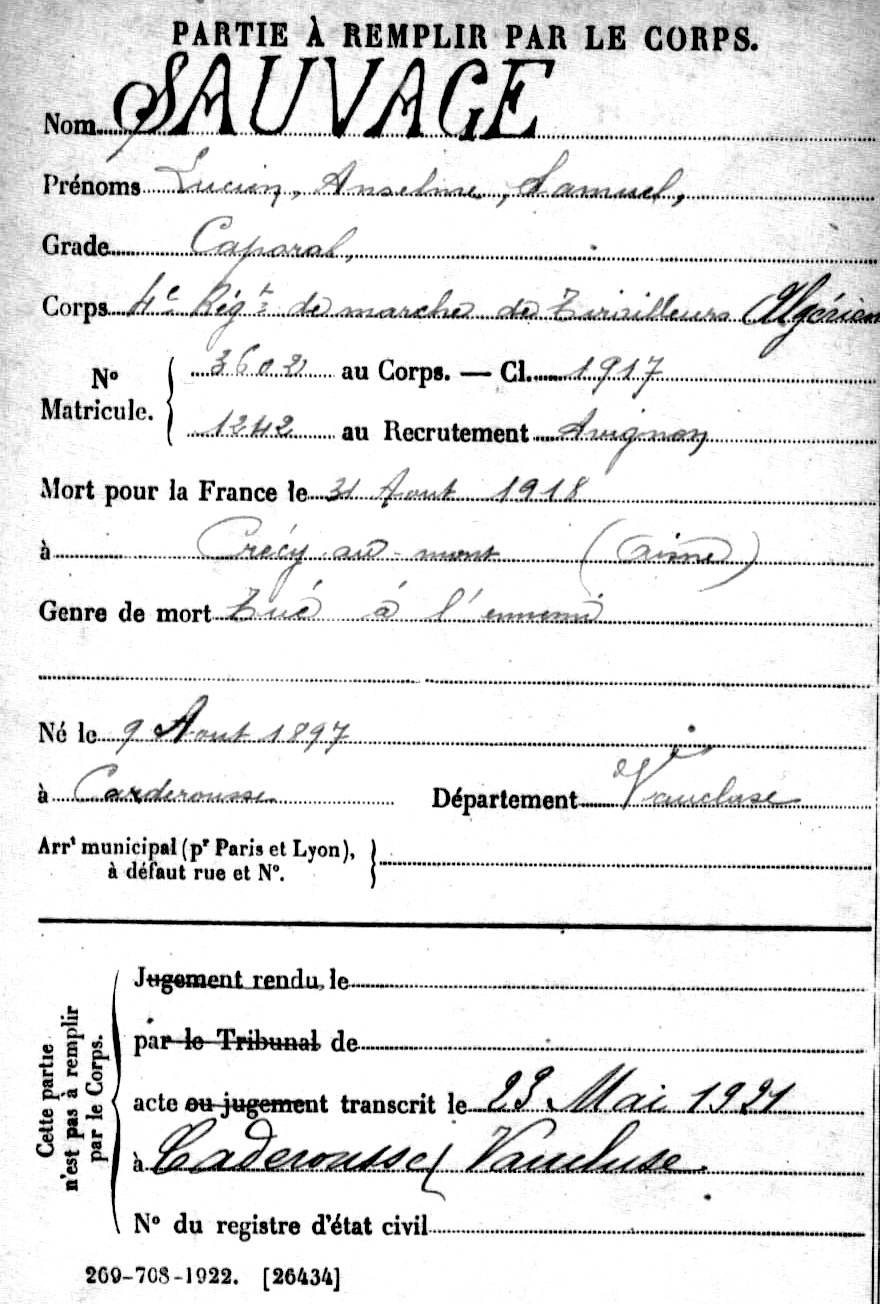 PARTIE À REMPLIR PAR LE CORPS.
Nom SAUVAGE
Prénoms Lucien, Anselme, Samuel,
Grade Caporal,
Corps 4e Régt de marche de Tirailleurs Algérien
No Matricule. 3602 au Corps. — Cl. 1917
1242 au Recrutement Avignon
Mort pour la France le 31 Aout 1918
à Crécy au mont (Aisne)
Genre de mort Tué à l'ennemi
Né le 9 Aout 1897
à Carderousse Département Vaucluse
Arrt municipal (pr Paris et Lyon),
à défaut rue et No.
Cette partie n'est pas à remplir par le Corps.
Jugement rendu, le
par le Tribunal de
acte ou jugement transcrit le 23 Mai 1921
à Caderousse (Vaucluse.
No du registre d'état civil
269-708-1922. [26434]